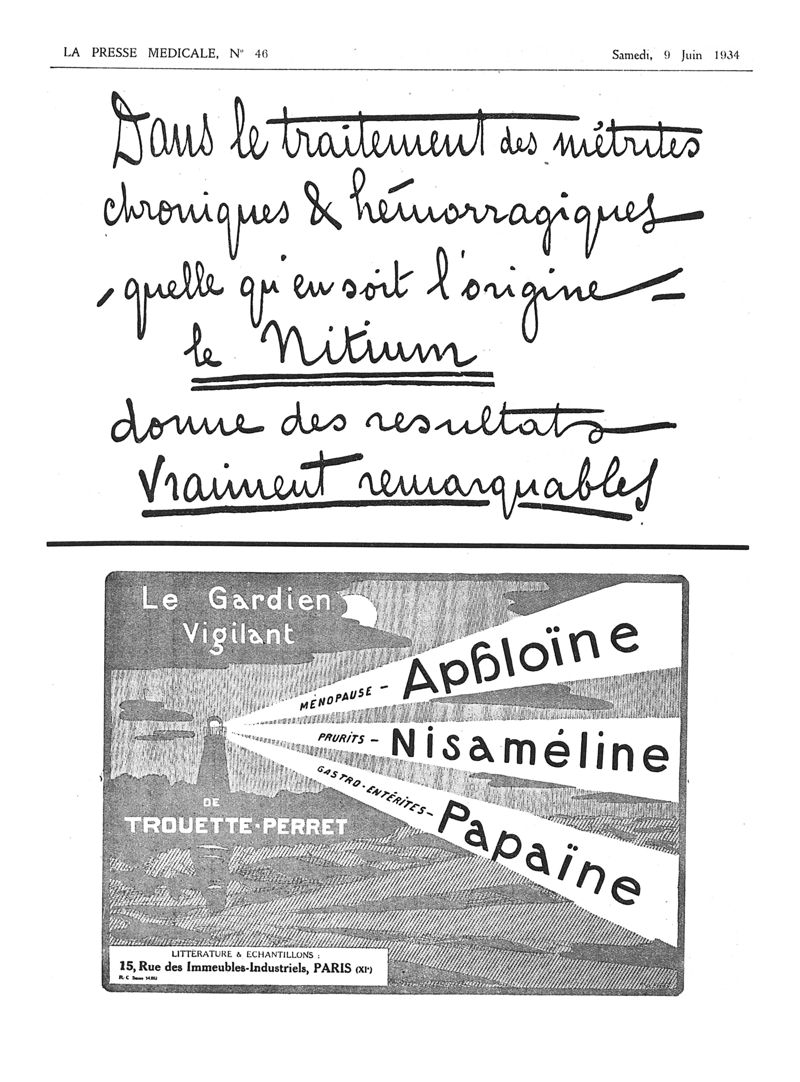 LA PRESSE MEDICALE, N° 46
Samedi, 9 Juin 1934
Dans le traitement des métrites
chroniques & hémorragiques
, quelle qu'en soit l'origine =
le Nitium
donne des resultats
vraiment remarquables
Le Gardien
Vigilant
MÉNOPAUSE - Aphloïne
PRURITS - Nisaméline
GASTRO-ENTÉRITES - Papaïne
DE
TROUETTE-PERRET
LITTERATURE & ECHANTILLONS :
15, Rue des Immeubles-Industriels, PARIS (XIe)
R. C.